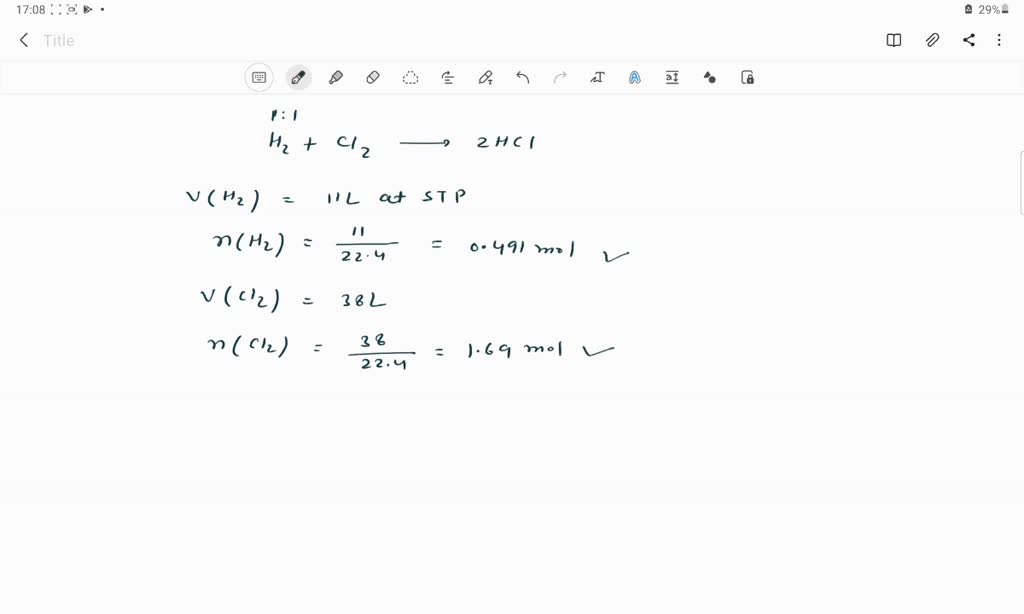 17:08
29%
Title
1:1
H₂ + Cl₂ ⟶ 2HCl
V(H₂) = 11L at STP
n(H₂) = 11/22.4 = 0.491 mol ✓
V(Cl₂) = 38L
n(Cl₂) = 38/22.4 = 1.69 mol ✓